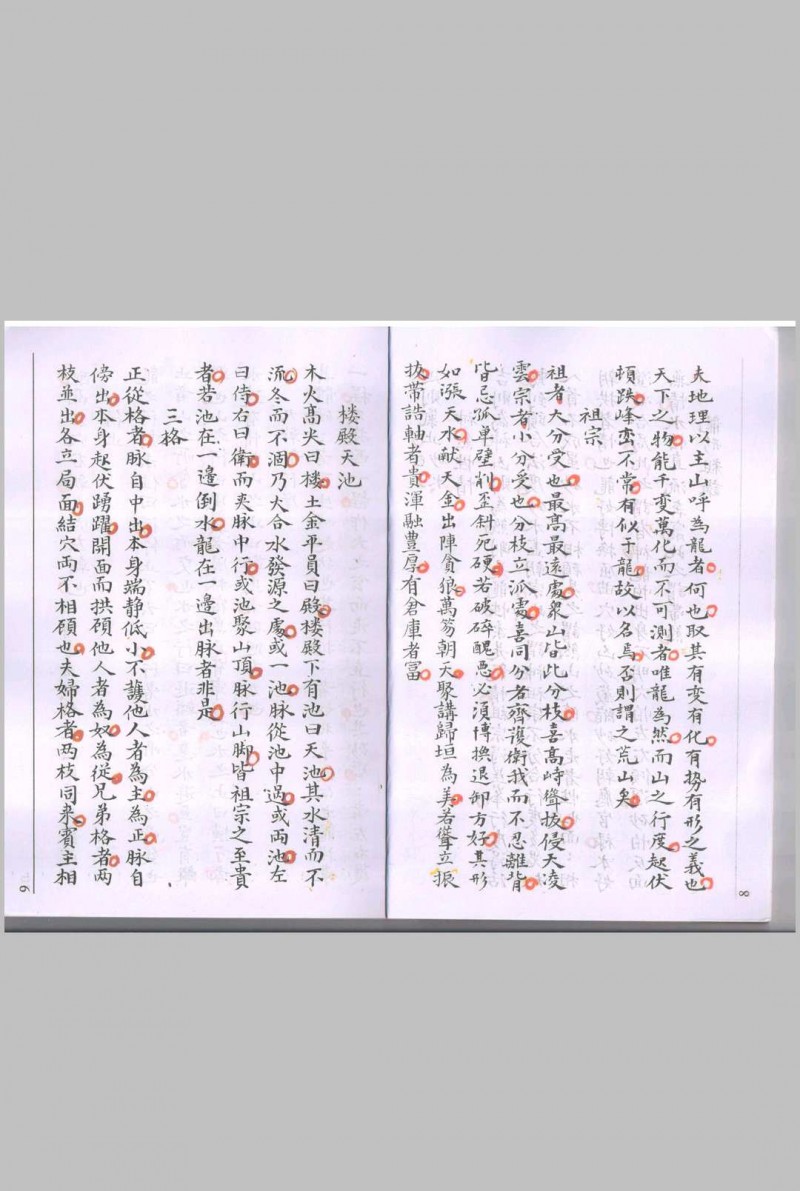 夫地理以主山呼為龍者何也取其有变有化有势有形之義也
天下之物能千变萬化而不可測者唯龍為然而山之行度起伏
頓跌峰峦不常有似于龍故以名焉否則謂之荒山矣
祖宗
祖者大分受也最高最遠處眾山皆此分枝喜高峙聳拔侵天凌
雲宗者小分受也分枝立派處喜同分者齊護衛我而不忍離背
皆忌孤单壁削歪斜死硬若破碎醜悪必須博換退卸方好其形
如漲天水献天金出陣貪狼萬笏朝天聚講歸垣為美若聳立振
拔帶誥軸者貴渾融豐厚有倉庫者富
8
楼殿天池
木火高尖曰楼土金平員曰殿楼殿下有池曰天池其水清而不
流冬而不涸乃大合水發源之處或一池脉從池中過或両池左
曰侍右曰衛而夹脉中行或池聚山頂脉行山脚皆祖宗之至貴
者若池在一邉倒水龍在一邉出脉者非是
三格
正從格者脉自中出本身端静低小不護他人者為主為正脉自
傍出本身起伏踴躍開面而拱碩他人者為奴為從兄弟格者両
枝並出各立局面結穴両不相碩也夫婦格者两枝同来賓主相
9